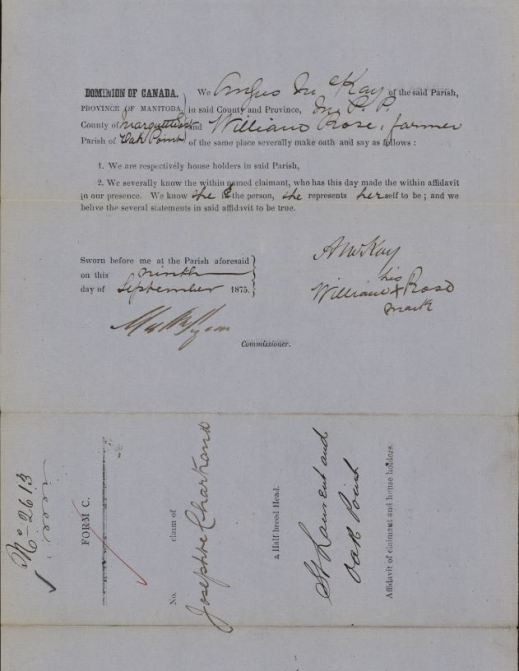 DOMINION OF CANADA. We Angus McKay of the said Parish,
PROVINCE OF MANITOBA, in said County and Province, M.P.P.
County of Marquette and William Rose, farmer
Parish of Oak Point of the same place severally make oath and say as follows :
1. We are respectively house holders in said Parish,
2. We severally know the within named claimant, who has this day made the within affidavit
in our presence. We know she is the person, she represents herself to be; and we
belive the several statements in said affidavit to be true.
Sworn before me at the Parish aforesaid
on this ninth
day of September 1875.
A McKay
his
William X Rose
mark
Commissioner.
No 2613
FORM C.
No.
claim of
Josephte Charkond
a Half breed Head.
St Laurent and
Oak Point
Affidavit of claimant and house holders.